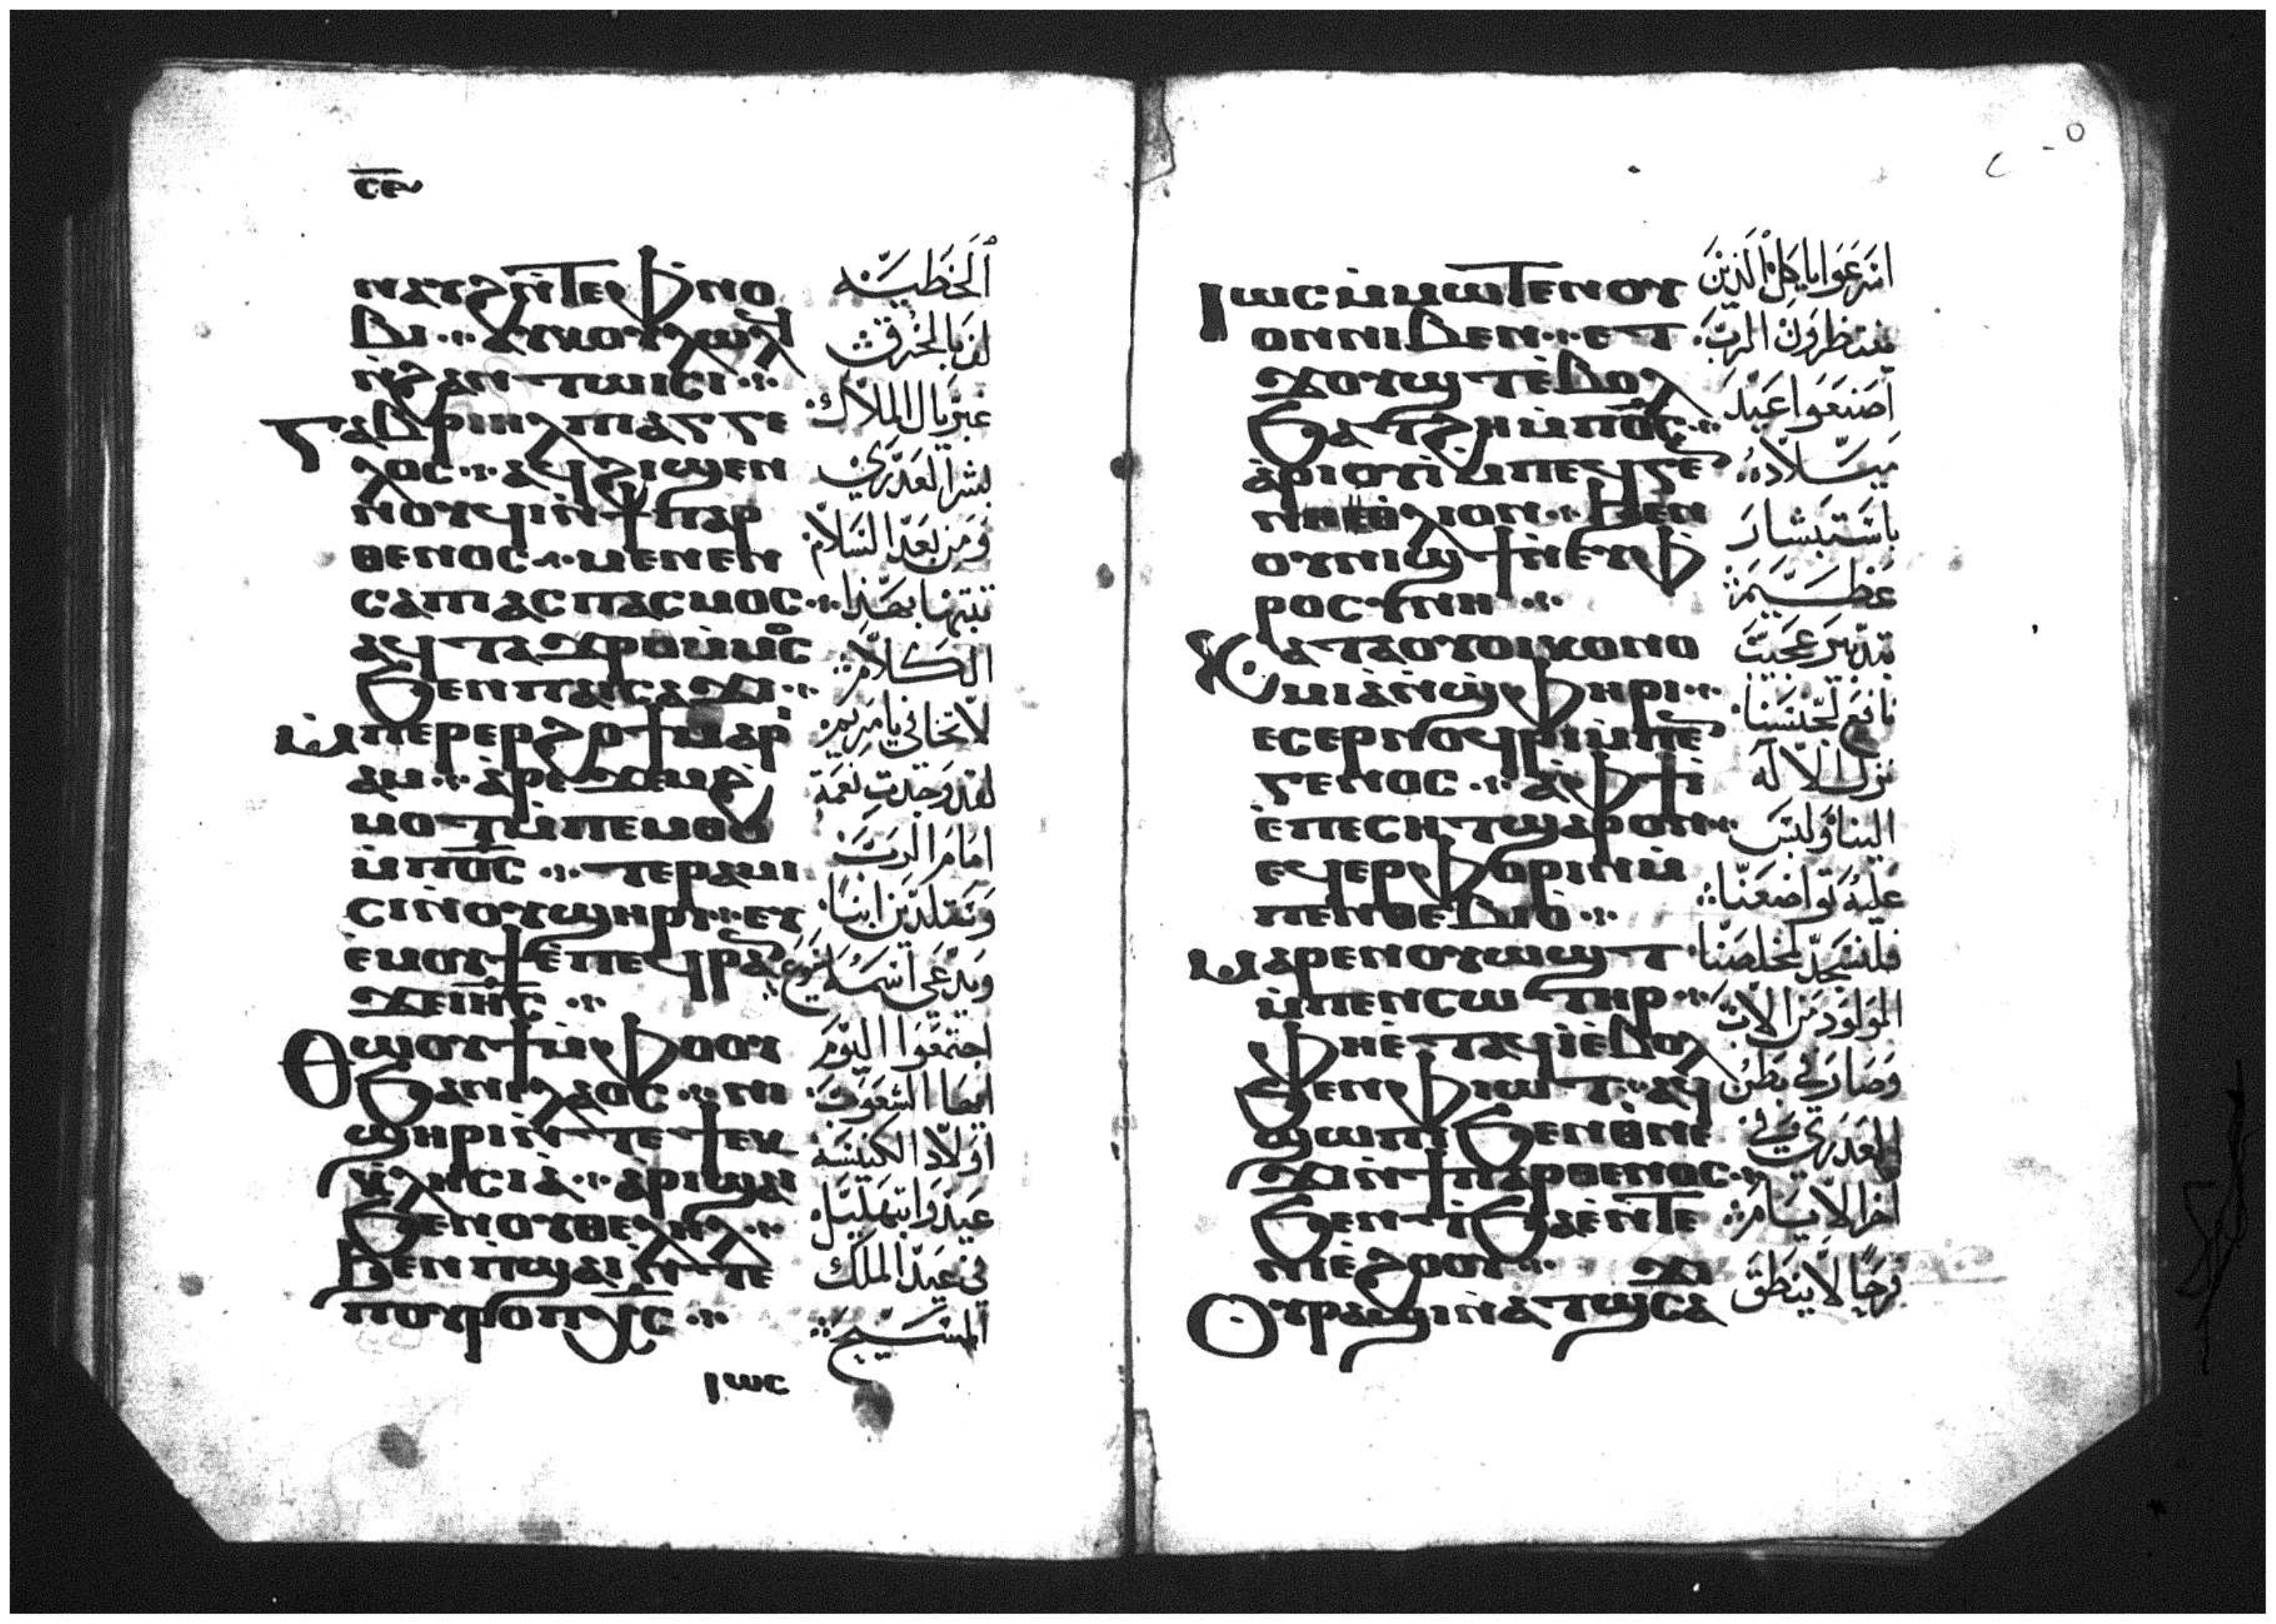 ⲥⲉ
ⲛⲁⲩϩⲛ̀ⲧⲉⲫ̀ⲛⲟ
ⲃⲓ ⲁⲩⲕⲟⲩⲗⲱⲗ
ⲛ̀ϩⲁⲛⲧⲱⲓⲥⲓ
ⲅⲁⲃⲣⲓⲏⲗ ⲡⲓⲁⲅⲅⲉ
ⲗⲟⲥ ⲁϥϩⲓϣⲉⲛ
ⲛⲟⲩϥⲓ ⲛ̀ϯⲡⲁⲣ
ⲑⲉⲛⲟⲥ ⲙⲉⲛⲉⲛ
ⲥⲁⲡⲓⲁⲥⲡⲁⲥⲙⲟⲥ
ⲁϥⲧⲁϫⲣⲟ ⲙ̀ⲙⲟⲥ
ϧⲉⲛⲡⲓⲥⲁϫⲓ
ⲙ̀ⲡⲉⲣⲉⲣϩⲟϯ ⲙⲁⲣⲓ
ⲁⲙ ⲁ̀ⲣⲉϫⲉⲙϩ̀
ⲙⲟⲧ ⲙ̀ⲡⲉⲙⲑⲟ
ⲙ̀ⲡⲟ̅ⲥ̅ ⲧⲉⲣⲁⲙⲓ
ⲥⲓ ⲛ̀ⲟⲩϣⲏⲣⲓ ⲉⲩ
ⲉ̀ⲙⲟⲩϯ ⲉ̀ⲡⲉϥⲣⲁⲛ
ϫⲉ ⲓⲏ̅ⲥ̅
ⲑⲱⲟⲩϯ ⲙ̀ⲫⲟⲟⲩ
ϧⲁⲛⲓⲗⲁⲟⲥ ⲛⲓ
ϣⲏⲣⲓ ⲛ̀ⲧⲉϯⲉⲕ
ⲕⲗⲏⲥⲓⲁ̀ ⲁ̀ⲣⲓϣⲁⲓ
ϧⲉⲛⲟⲩⲑⲉⲗⲏⲗ
ϧⲉⲛⲡ̀ϣⲁⲓ ⲛ̀ⲧⲉ
ⲡⲟⲩⲣⲟ ⲡⲭ̅ⲥ̅
ⲓⲱⲥ
ٱلخطيّه
لغز بالخرق
غبريال الملاك
بشر العدري
ومن بعد السلام
تبتها بهذا
الكلام
لا تخافي يا مريم
لقد وجدت نعمة
امام الرب
وتلدين ابنا
ويدعي اسمه يسوع
اجتمعوا اليوم
ايها الشعوب
اولاد الكنيسة
عيدوا بتهليل
في عيد الملك
المسيح
ⲓⲱⲥ ⲙ̀ⲙⲱⲧⲉⲛ ⲟⲩ
ⲟⲛ ⲛⲓⲃⲉⲛ ⲉⲧ
ϫⲟⲩϣⲧ ⲉ̀ⲃⲟⲗ
ϧⲁⲧϩⲏ ⲙ̀ⲡⲟ̅ⲥ̅
ⲁ̀ⲣⲓⲟⲩⲓ ⲙ̀ⲡⲉϥⲅⲉ
ⲛⲉⲑⲗⲓⲟⲛ ϧⲉⲛ
ⲟⲩⲛⲓϣϯ ⲛ̀ⲉⲩⲫ
ⲣⲟⲥⲩⲛⲏ
ⲕⲁⲧⲁ ⲟⲩⲟⲓⲕⲟⲛⲟ
ⲙⲓⲁ̀ ⲛ̀ϣⲫⲏⲣⲓ
ⲉⲥⲉⲣⲛⲟϥⲣⲓ ⲙ̀ⲡⲉⲛ
ⲅⲉⲛⲟⲥ ⲁ̀ⲫϯ ⲓ̀
ⲉ̀ⲡⲉⲥⲏⲧ ϣⲁⲣⲟⲛ
ⲉϥⲉⲣⲫⲟⲣⲓⲛ ⲙ̀
ⲡⲉⲛⲑⲉⲃⲓⲟ̀
ⲙⲁⲣⲉⲛⲟⲩⲱϣⲧ
ⲙ̀ⲡⲉⲛⲥⲱⲧⲏⲣ
ⲫⲏⲉ̀ⲧⲁϥⲓ̀ ⲉ̀ⲃⲟⲗ
ϧⲉⲛⲫ̀ⲓⲱⲧ ⲁϥ
ϣⲱⲡⲓ ϧⲉⲛⲑ̀ⲛⲉ
ϫⲓ ⲛ̀ϯⲡⲁⲣⲑⲉⲛⲟⲥ
ϧⲉⲛⲧ̀ϧⲁⲉ̀ ⲛ̀ⲧⲉ
ⲛⲓⲉ̀ϩⲟⲟⲩ
ⲟⲩⲣⲁϣⲓ ⲛ̀ⲁⲧⲥⲁϫⲓ
اسرعوا يا كل الذين
ينتظرون الرب
اصنعوا عيد
ميلاده
باستبشار
عظيم
تدبير عجيب
نافع لجنسنا
نزل الاله
الينا ولبس
عليه تواضعنا
فلنسجد لمخلصنا
المولود من الاب
وصار في بطن
العدري في
اخر الايام
فرحًا لا ينطق